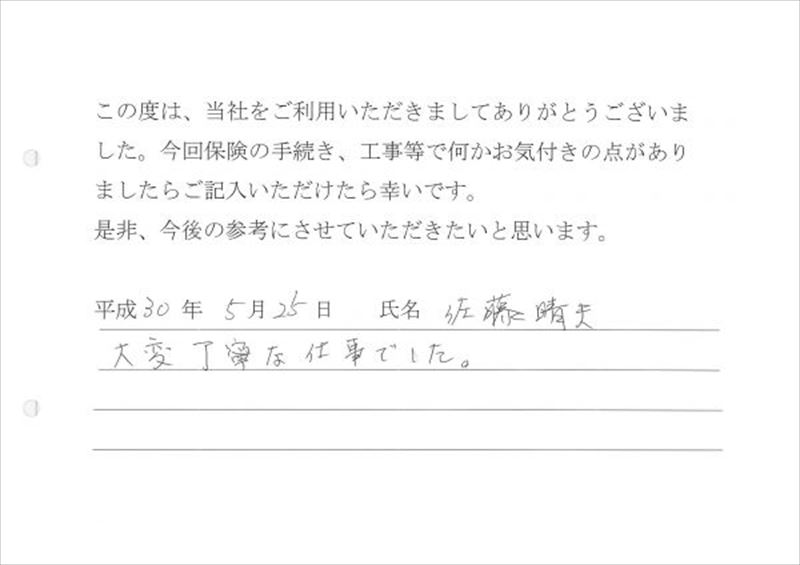 この度は、当社をご利用いただきましてありがとうございま
した。今回保険の手続き、工事等で何かお気付きの点があり
ましたらご記入いただけたら幸いです。
是非、今後の参考にさせていただきたいと思います。
平成30年 5月25日 氏名 佐藤晴夫
大変丁寧な仕事でした。